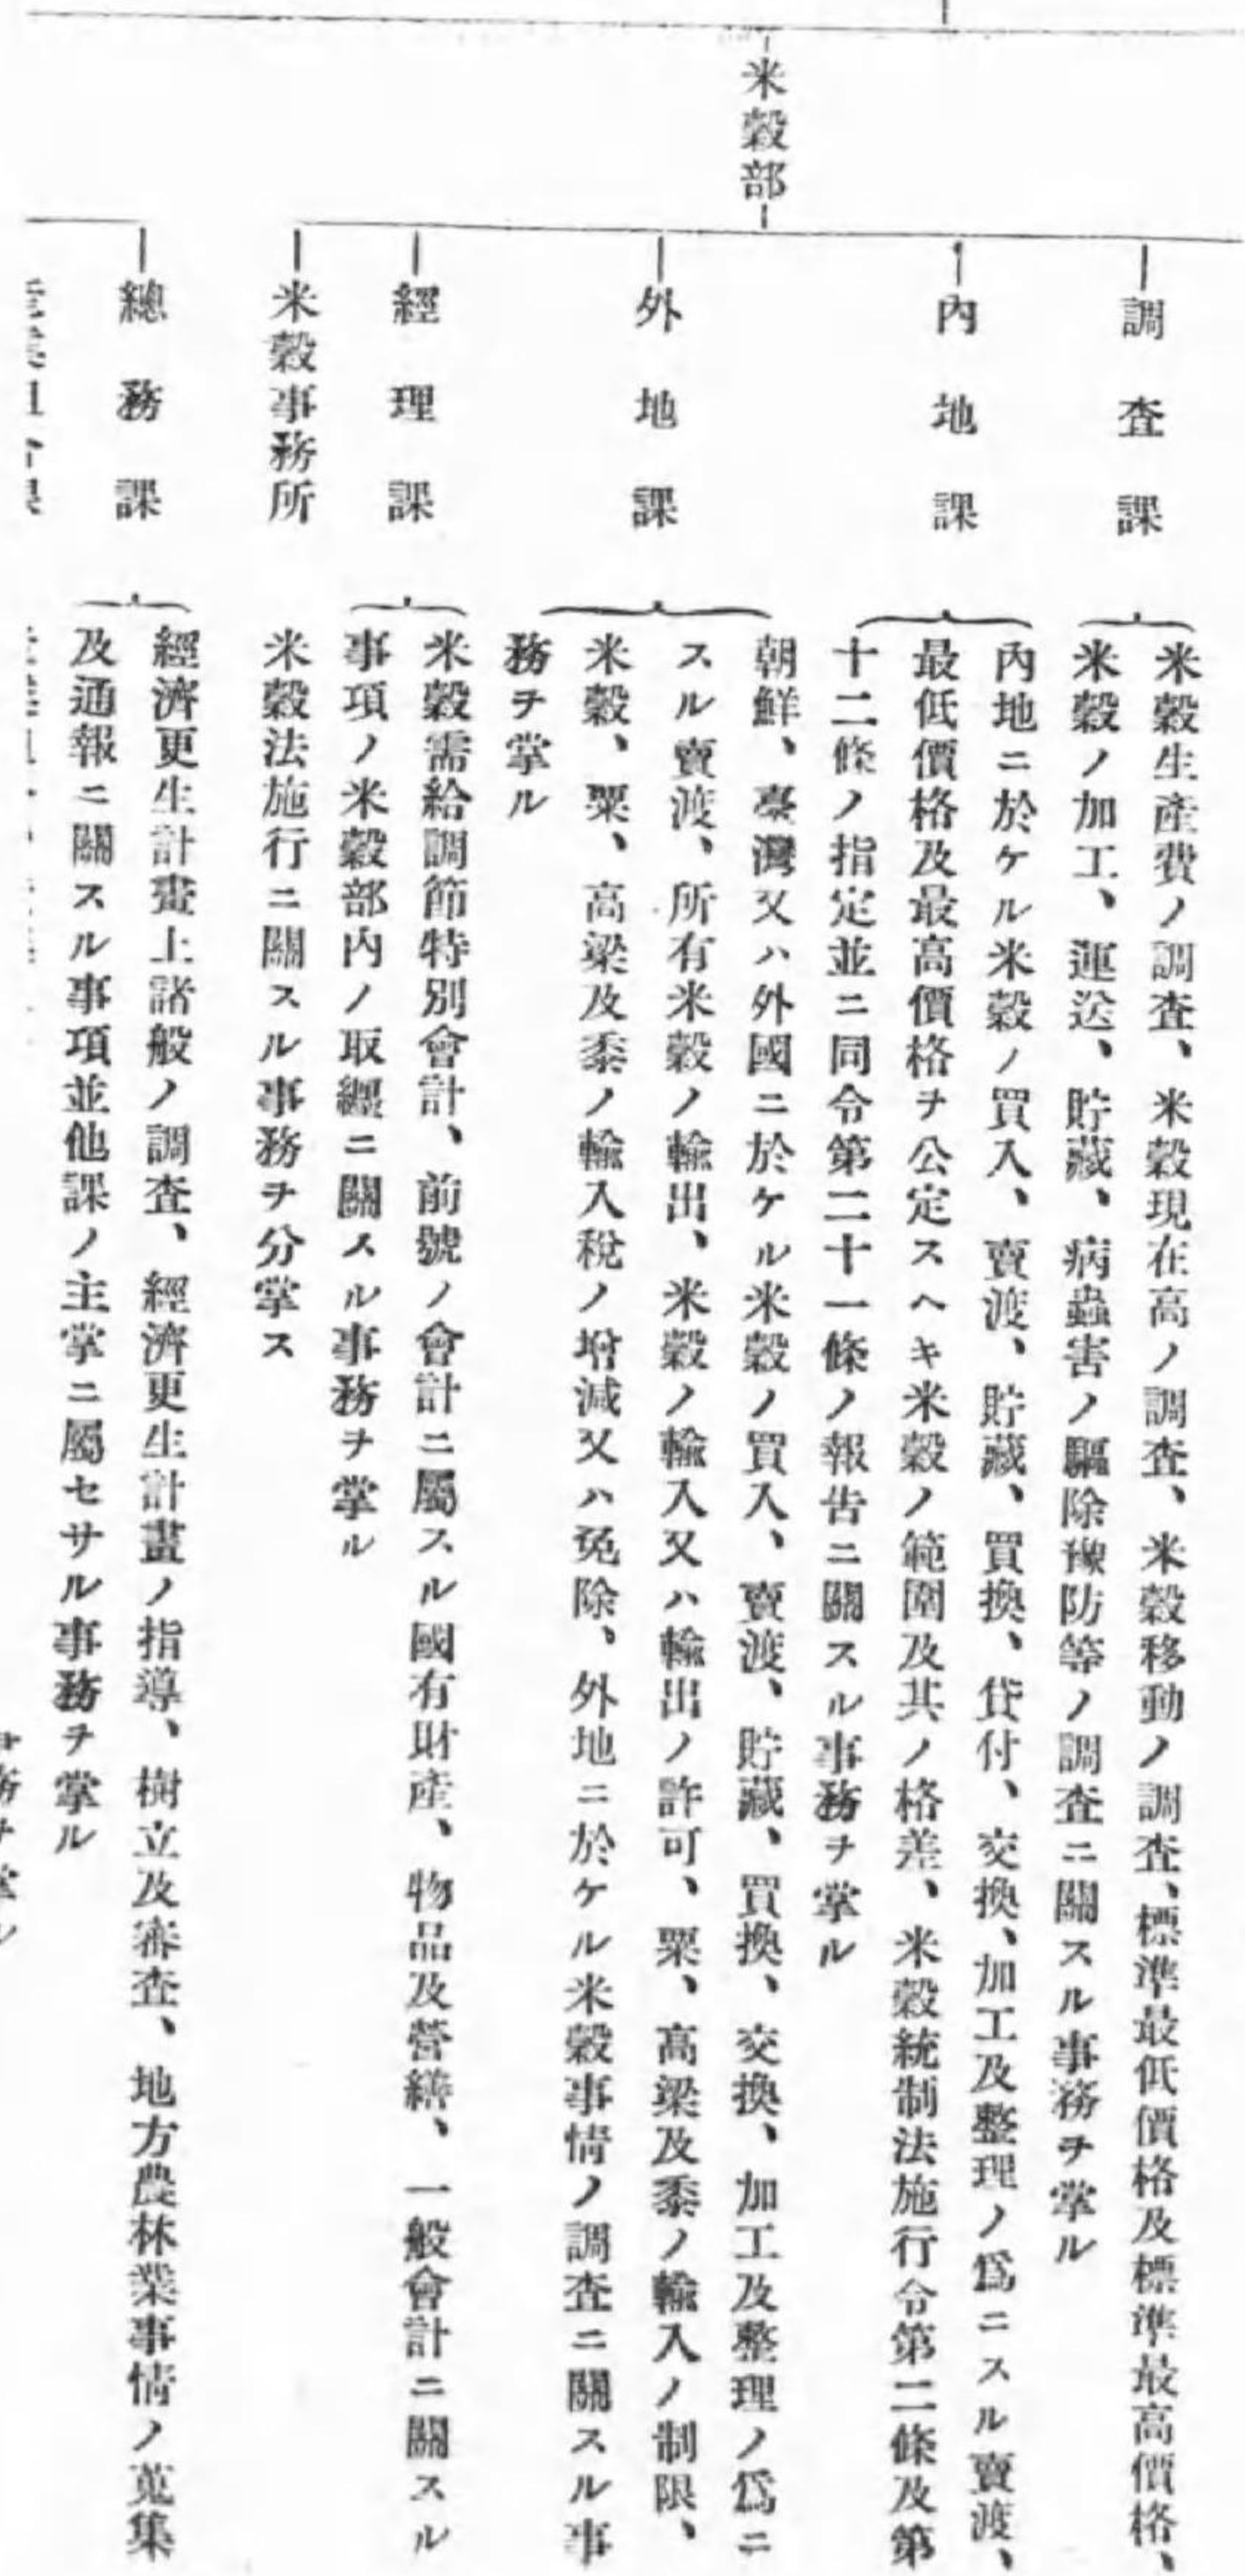 米穀部
調査課
米穀生產費ノ調査、米穀現在高ノ調査、米穀移動ノ調査、標準最低價格及標準最高價格、
米穀ノ加工、運送、貯藏、病蟲害ノ驅除豫防等ノ調査ニ關スル事務ヲ掌ル
內地課
內地ニ於ケル米穀ノ買入、賣渡、貯藏、買換、貸付、交換、加工及整理ノ爲ニスル賣渡、
最低價格及最高價格ヲ公定スヘキ米穀ノ範圍及其ノ格差、米穀統制法施行令第二條及第
十二條ノ指定並ニ同令第二十一條ノ報告ニ關スル事務ヲ掌ル
外地課
朝鮮、臺灣又ハ外國ニ於ケル米穀ノ買入、賣渡、貯藏、買換、交換、加工及整理ノ爲ニ
スル賣渡、所有米穀ノ輸出、米穀ノ輸入又ハ輸出ノ許可、粟、高粱及黍ノ輸入ノ制限、
米穀、粟、高粱及黍ノ輸入稅ノ增減又ハ免除、外地ニ於ケル米穀事情ノ調査ニ關スル事
務ヲ掌ル
經理課
米穀需給調節特別會計、前號ノ會計ニ屬スル國有財產、物品及營繕、一般會計ニ關スル
事項ノ米穀部內ノ取纒ニ關スル事務ヲ掌ル
米穀事務所
米穀法施行ニ關スル事務ヲ分掌ス
總務課
經濟更生計畫上諸般ノ調査、經濟更生計畫ノ指導、樹立及審査、地方農林業事情ノ蒐集
及通報ニ關スル事項並他課ノ主掌ニ屬セサル事務ヲ掌ル